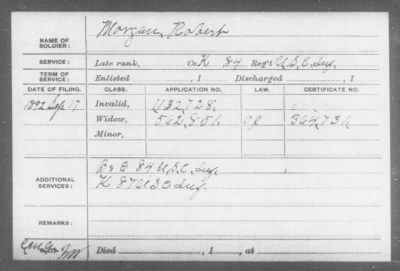 NAME OF SOLDIER: Morgan, Robert
SERVICE: Late rank, Co. K 84 Reg't U.S.C. Inf.
TERM OF SERVICE: Enlisted , 1 Discharged , 1
DATE OF FILING. CLASS. APPLICATION NO. LAW. CERTIFICATE NO.
1892 Sep 17 Invalid,
Widow,
Minor,
ADDITIONAL SERVICES: 84 U.S.C. Inf.
K 87 U S C Inf.
REMARKS:
Died , 1 , at